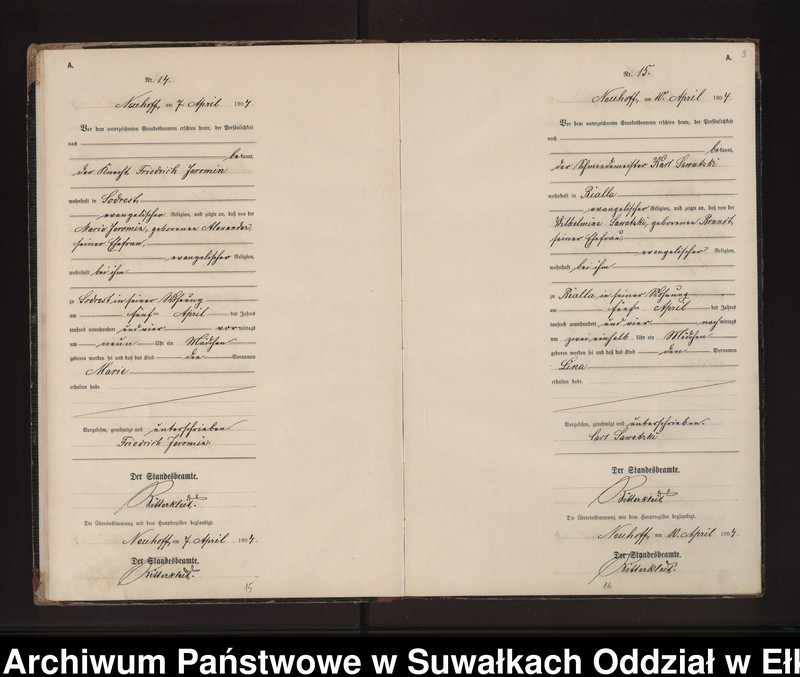 A.
Nr. 14.
Neuhoff, am 7. April 1904.
Vor dem unterzeichneten Standesbeamten erschien heute, der Persönlichkeit
nach
bekannt,
der Knecht Friedrich Jeromin
wohnhaft in Sodrest
evangelischer Religion, und zeigte an, daß von der
Marie Jeromin, geborenen Alexander,
seiner Ehefrau
evangelischer Religion,
wohnhaft bei ihm
zu Sodrest in seiner Wohnung
am fünf April des Jahres
tausend neunhundert und vier vormittags
um neun Uhr ein Mädchen
geboren worden sei und daß das Kind den Vornamen
Marie
erhalten habe.
Vorgelesen, genehmigt und unterschrieben
Friedrich Jeromin.
Der Standesbeamte.
Ritterkleit.
Die Übereinstimmung mit dem Hauptregister beglaubigt.
Neuhoff, am 7. April 1904
Der Standesbeamte.
Ritterkleit.
15
A.
9
Nr. 15.
Neuhoff, am 10. April 1904.
Vor dem unterzeichneten Standesbeamten erschien heute, der Persönlichkeit
nach
bekannt,
der Schmiedemeister Karl Sawatzki
wohnhaft in Rialla
evangelischer Religion, und zeigte an, daß von der
Wilhelmine Sawatzki, geborenen Brandt,
seiner Ehefrau
evangelischer Religion,
wohnhaft bei ihm
zu Rialla in seiner Wohnung
am fünf April des Jahres
tausend neunhundert und vier nachmittags
um zwei einhalb Uhr ein Mädchen
geboren worden sei und daß das Kind den Vornamen
Lina
erhalten habe.
Vorgelesen, genehmigt und unterschrieben.
Carl Sawatzki
Der Standesbeamte.
Ritterkleit
Die Übereinstimmung mit dem Hauptregister beglaubigt.
Neuhoff, am 10. April 1904
Der Standesbeamte.
Ritterkleit.
16
Archiwum Państwowe w Suwałkach Oddział w Ełk